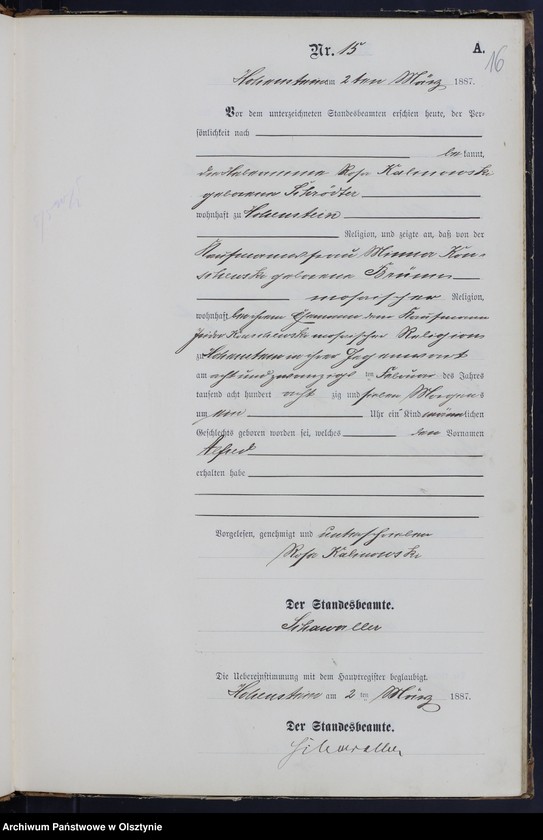 Nr. 15
A.
16
Hohenstein am 2ten März 1887.
Vor dem unterzeichneten Standesbeamten erschien heute, der Per-
sönlichkeit nach
be kannt,
die Hebamme Rosa Kalinowski
geborene Schrödter
wohnhaft zu Hohenstein
Religion, und zeigte an, daß von der
Kaufmannsfrau Minna
geborene
mosaischer Religion,
wohnhaft bei ihrem Ehemann dem Kaufmann
mosaischer Religion
zu Hohenstein in ihrer Gegenwart
am acht und zwanzigsten Februar des Jahres
tausend acht hundert acht zig und sieben Morgens
um Uhr ein Kind männlichen
Geschlechts geboren worden sei, welches den Vornamen
Alfred
erhalten habe
Vorgelesen, genehmigt und unterschrieben
Rosa Kalinowski
Der Standesbeamte.
Schawaller
Die Uebereinstimmung mit dem Hauptregister beglaubigt.
Hohenstein am 2 ten März 1887.
Der Standesbeamte.
Schawaller
Archiwum Państwowe w Olsztynie